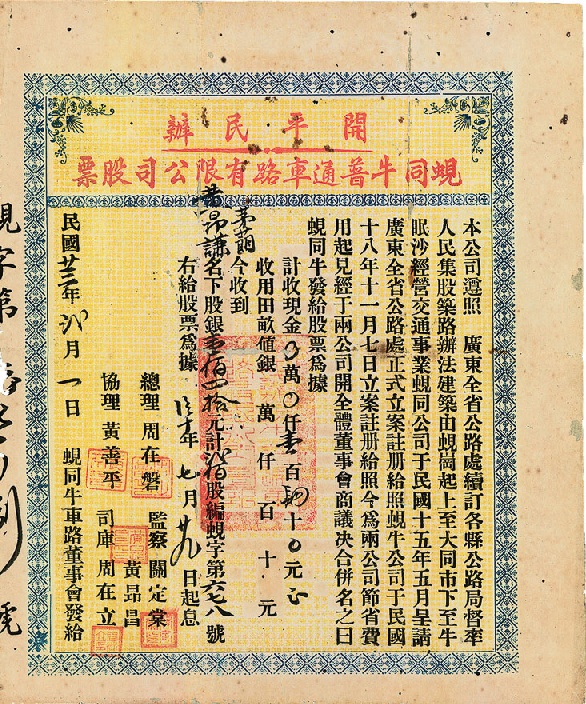 開平民辦
蜆同牛普通車路有限公司股票
本公司遵照　廣東全省公路處續訂各縣公路局督率
人民集股築路辦法建築由蜆崗起上至大同市下至牛
眠沙經營交通事業蜆同公司于民國十五年五月呈請
廣東全省公路處正式立案註册給照蜆牛公司于民國
十八年十一月七日立案註册給照今爲兩公司節省費
用起見經于兩公司開全體董事會商議决合併名之曰
蜆同牛發給股票爲據
計收現金〇萬〇仟壹百四十〇元正
收用田畝值銀　萬　仟　百　十　元
今收到
黃昂謙名下股銀壹佰四拾元計 股編蜆字第六七八號
右給股票爲據　年七月廿九日起息
總理 周在磐　監察 關定業
黃昂昌
協理 黃善平　司庫 周在立
民國廿二年 月一日　蜆同牛車路董事會發給
蜆字第 號